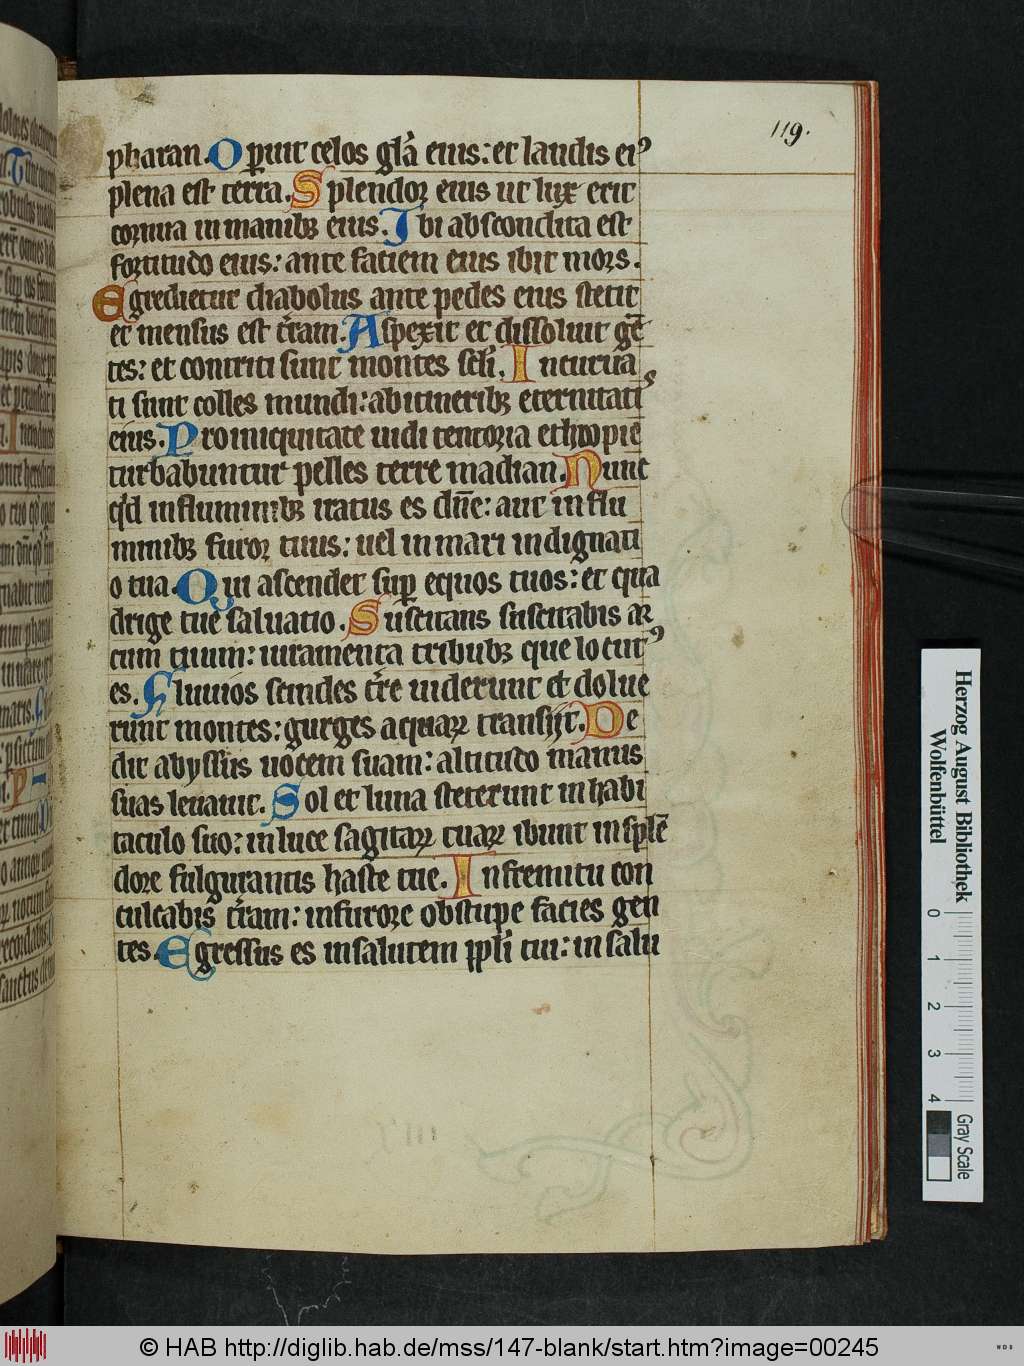 119.
pharan. Operuit celos gl̄a eius: et laudis eiꝰ
plena est terra. Splendor eius ut lux erit
cornua in manibꝫ eius. Ibi abscondita est
fortitudo eius: ante faciem eius ibit mors.
Egredietur diabolus ante pedes eius stetit
et mensus est t̄ram. Aspexit et dissoluit gē
tes: et contriti sunt montes scl̄i. Incurua
ti sunt colles mundi: ab itineribꝫ eternitatis
eius. Pro iniquitate uidi tentoria ethiopiē
turbabuntur pelles terre madian. Nunc
qͥd in fluminibꝫ iratus es dn̄e: aut in flu
minibꝫ furor tuus: uel in mari indignati
o tua. Qui ascendet suꝑ equos tuos: et qua
drige tue saluatio. Suscitans suscitabis ar
cum tuum: iuramenta tribubꝫ que locutꝰ
es. Fluuios scindes t̄re uiderunt et dolue
runt montes: gurges aquaꝝ transijt. De
dit abyssus uocem suam: altitudo manus
suas leuauit. Sol et luna steterunt in habi
taculo suo: in luce sagittaꝝ tuaꝝ ibunt in splē
dore fulgurantis haste tue. In fremitu con
culcabis t̄ram: in furore obstupe facies gen
tes. Egressus es in salutem ppl̄i tui: in salu
Herzog August Bibliothek
Wolfenbüttel
0 1 2 3 4
Gray Scale
© HAB http://diglib.hab.de/mss/147-blank/start.htm?image=00245